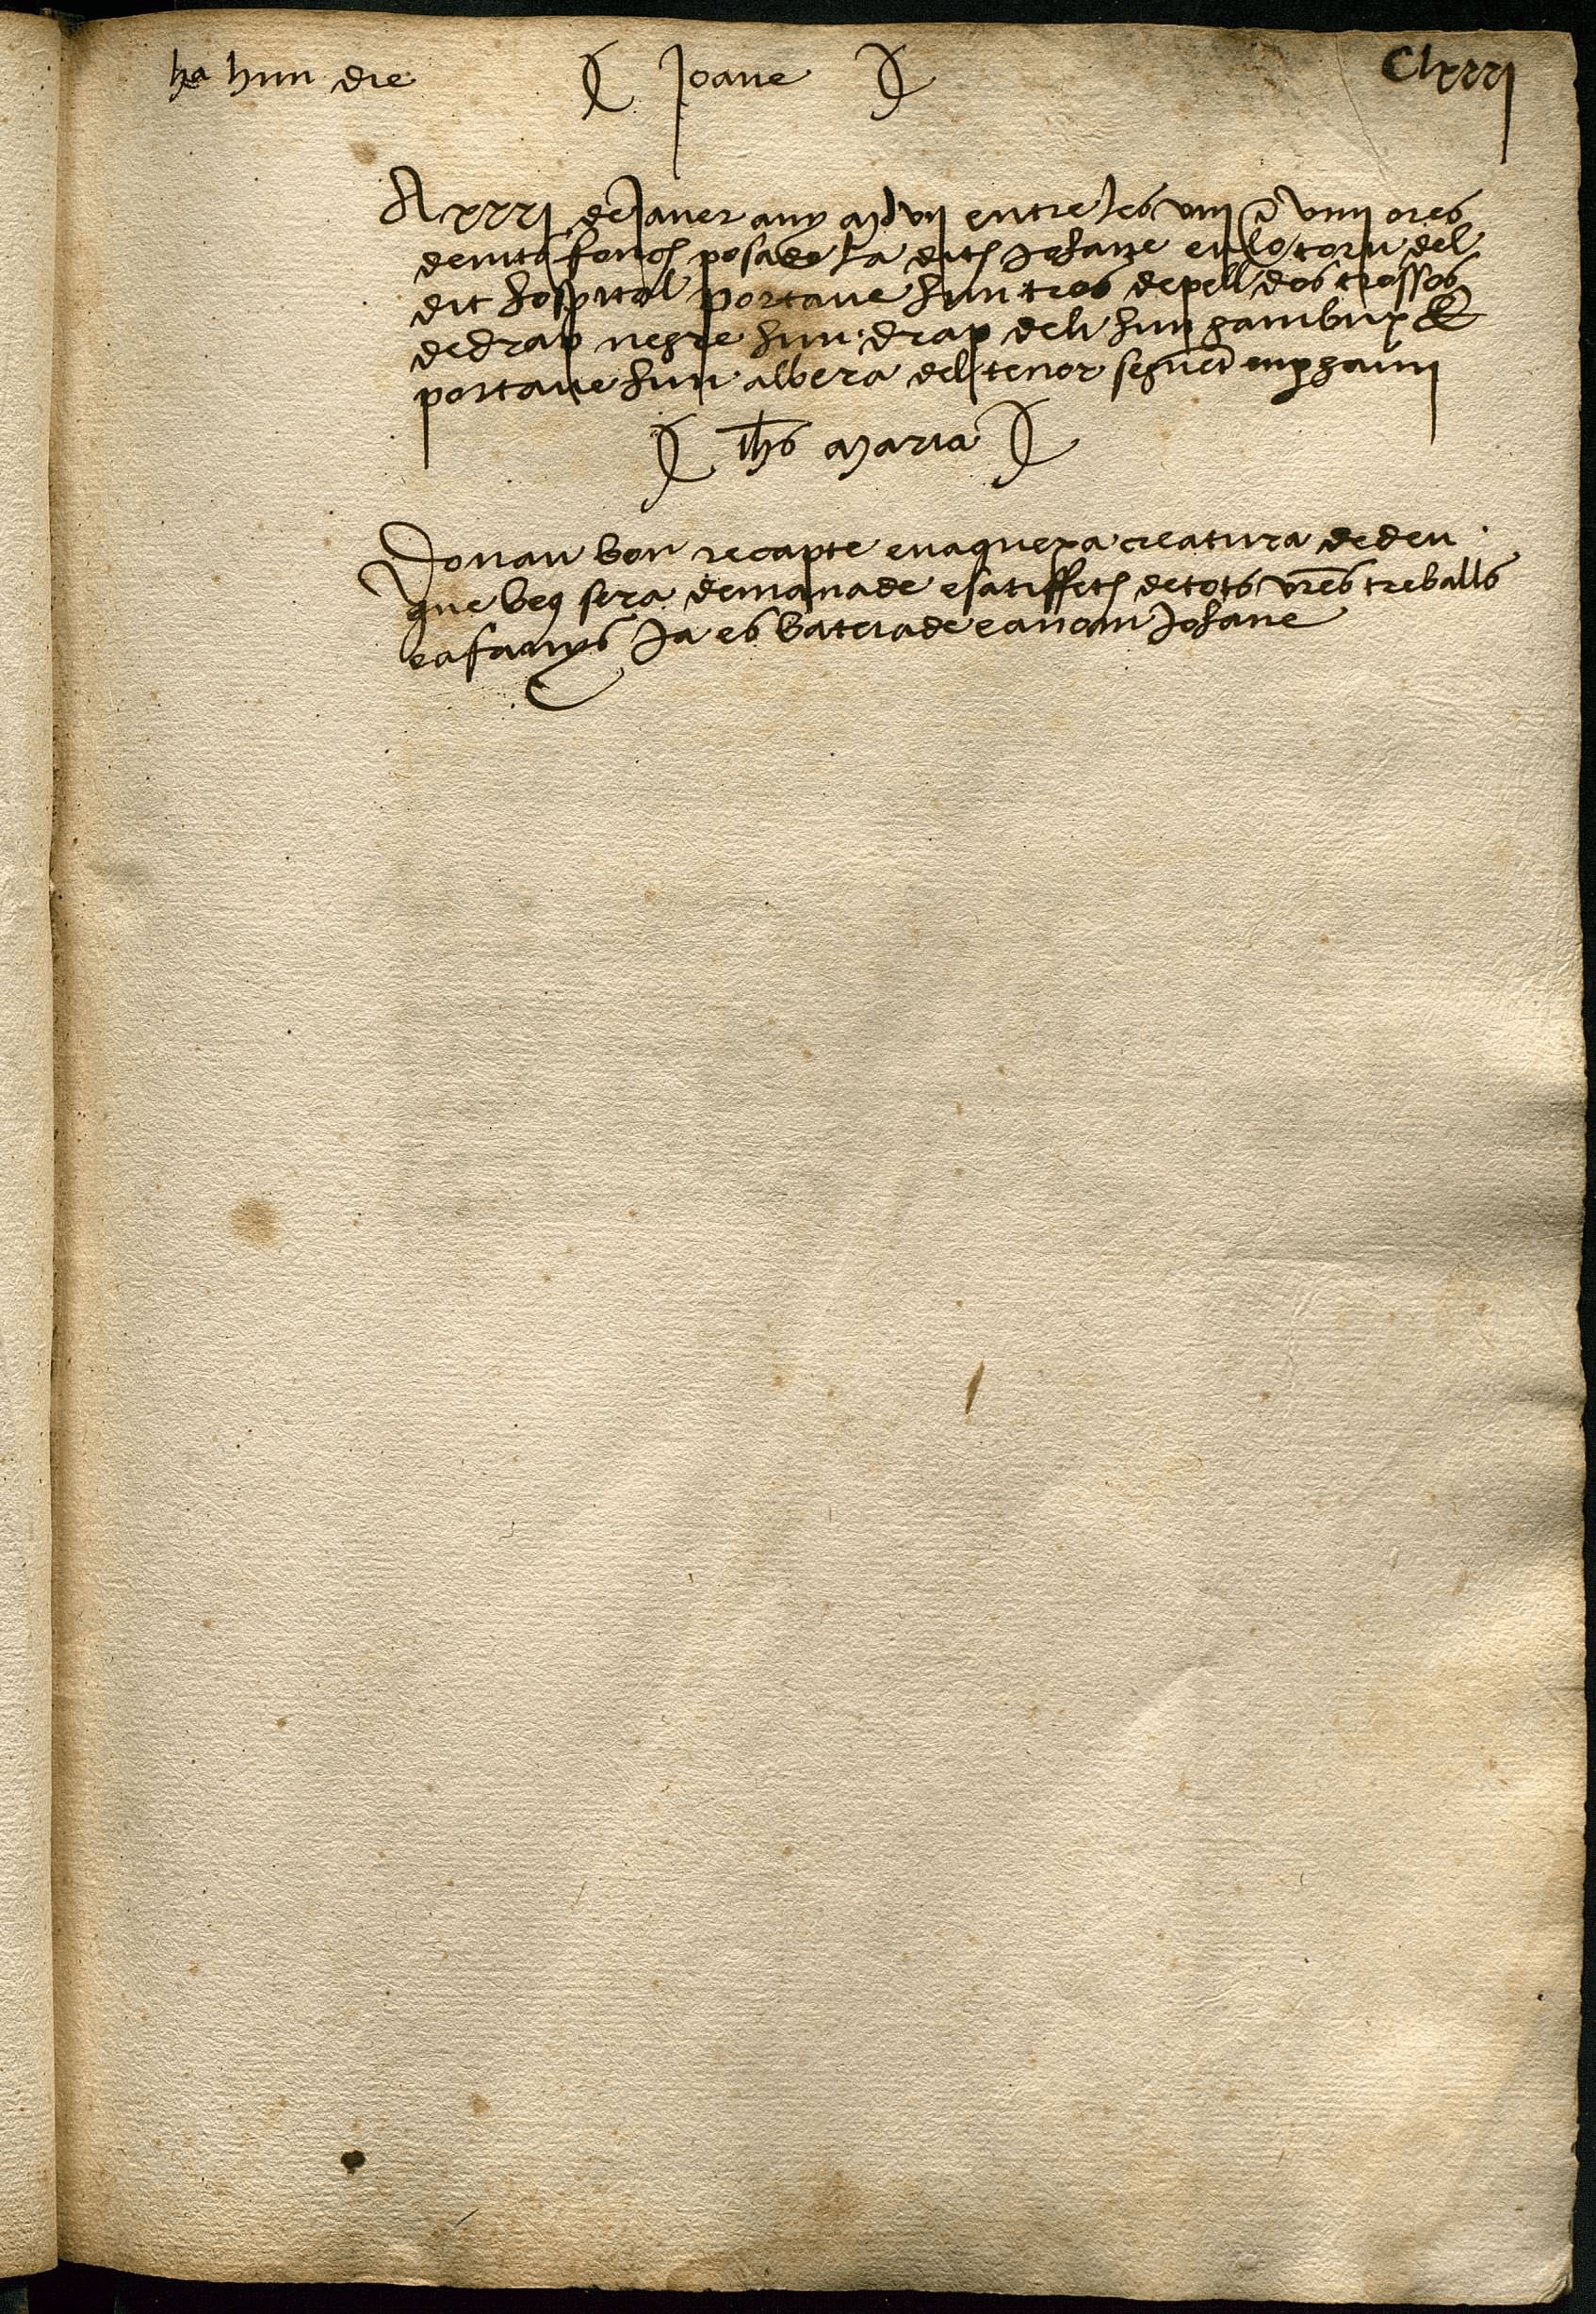 ha hun die ( Joane ) Clxxxj
A xxxj de Janer any mdvij entre les viij e viiij ores
de nits fonch posada la dita Johane en lo torn del
dit hospital portave hun tros de pell dos trossos
de drap negre hun drap de li hun gambux &
portave hun albera del tenor seguent
( ihs maria )
Donau bon recapte en aquexa creatura de deu
que beg sera demanade e satiffeta de tots vres treballs
e afanys Ja es bateiade e a nom Johane